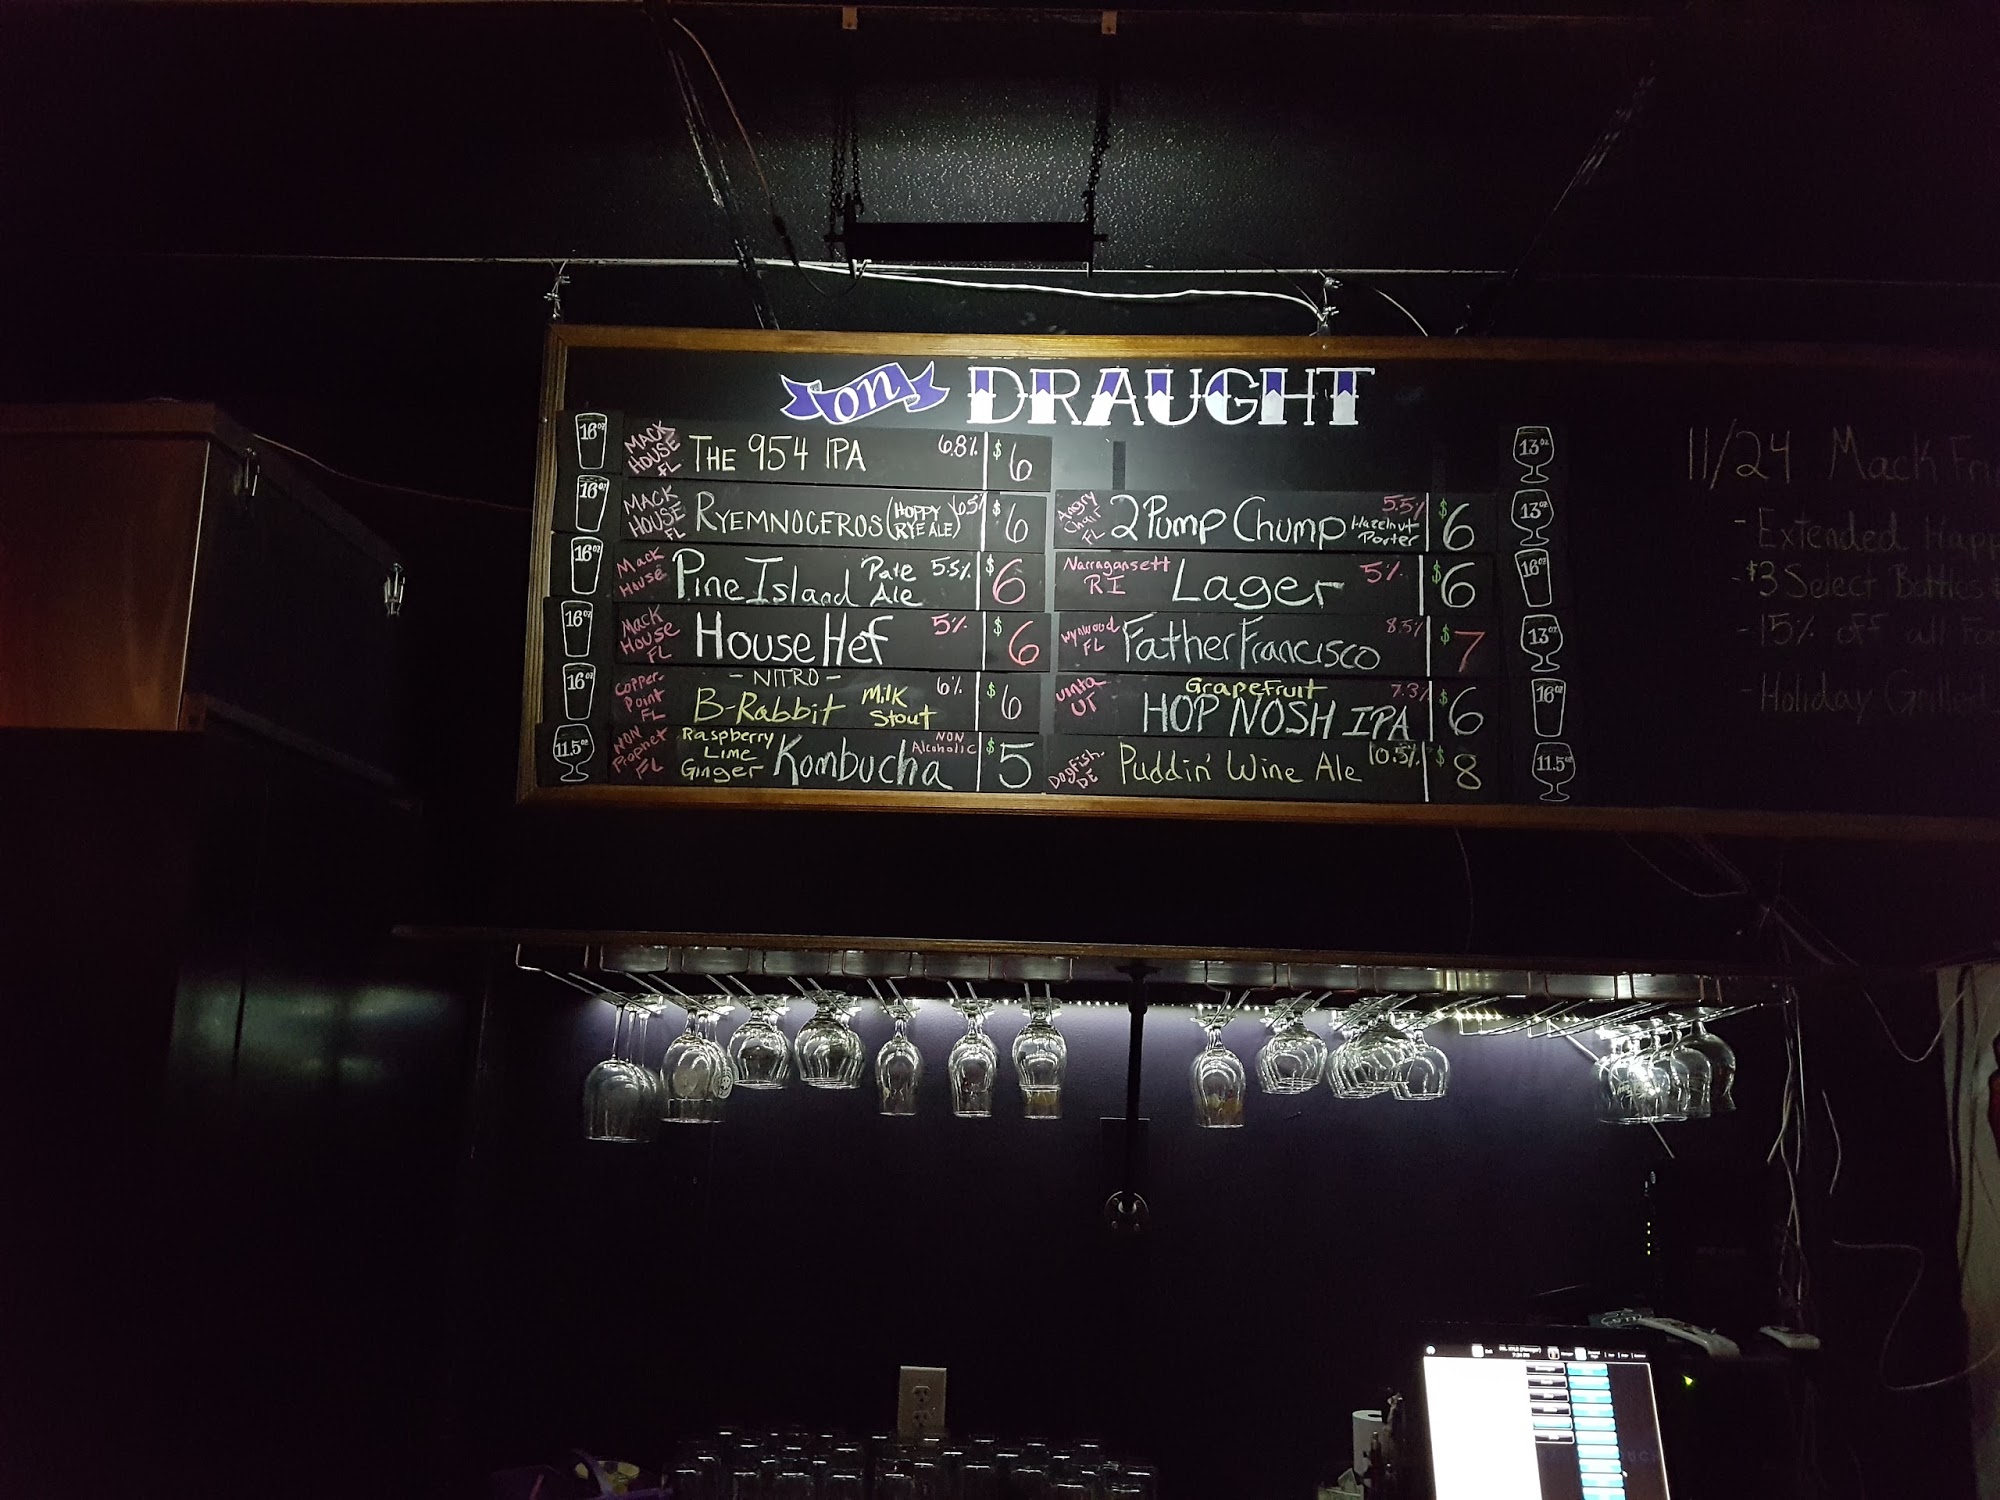 on DRAUGHT
16oz MACK HOUSE FL THE 954 IPA 6.8% $6
16oz MACK HOUSE FL RYEMNOCEROS (HOPPY RYE ALE) 6.5% $6
16oz Mack House Pine Island Pale Ale 5.5% $6
16oz Mack House FL House Hef 5% $6
16oz Copper-Point FL - NITRO - B-Rabbit Milk Stout 6% $6
11.5oz NON Prophet FL Raspberry Lime Ginger Kombucha NON Alcoholic $5
13oz
Angry Chair FL 2 Pump Chump Hazelnut Porter 5.5% $6 13oz
Narragansett RI Lager 5% $6 16oz
Wynwood FL Father Francisco 8.5% $7 13oz
Uinta UT Grapefruit HOP NOSH IPA 7.3% $6 16oz
Dogfish. DE Puddin' Wine Ale 10.5% $8 11.5oz
11/24 Mack
- Extended
- $3 Select Bottles
- 15% off all
- Holiday Grilled